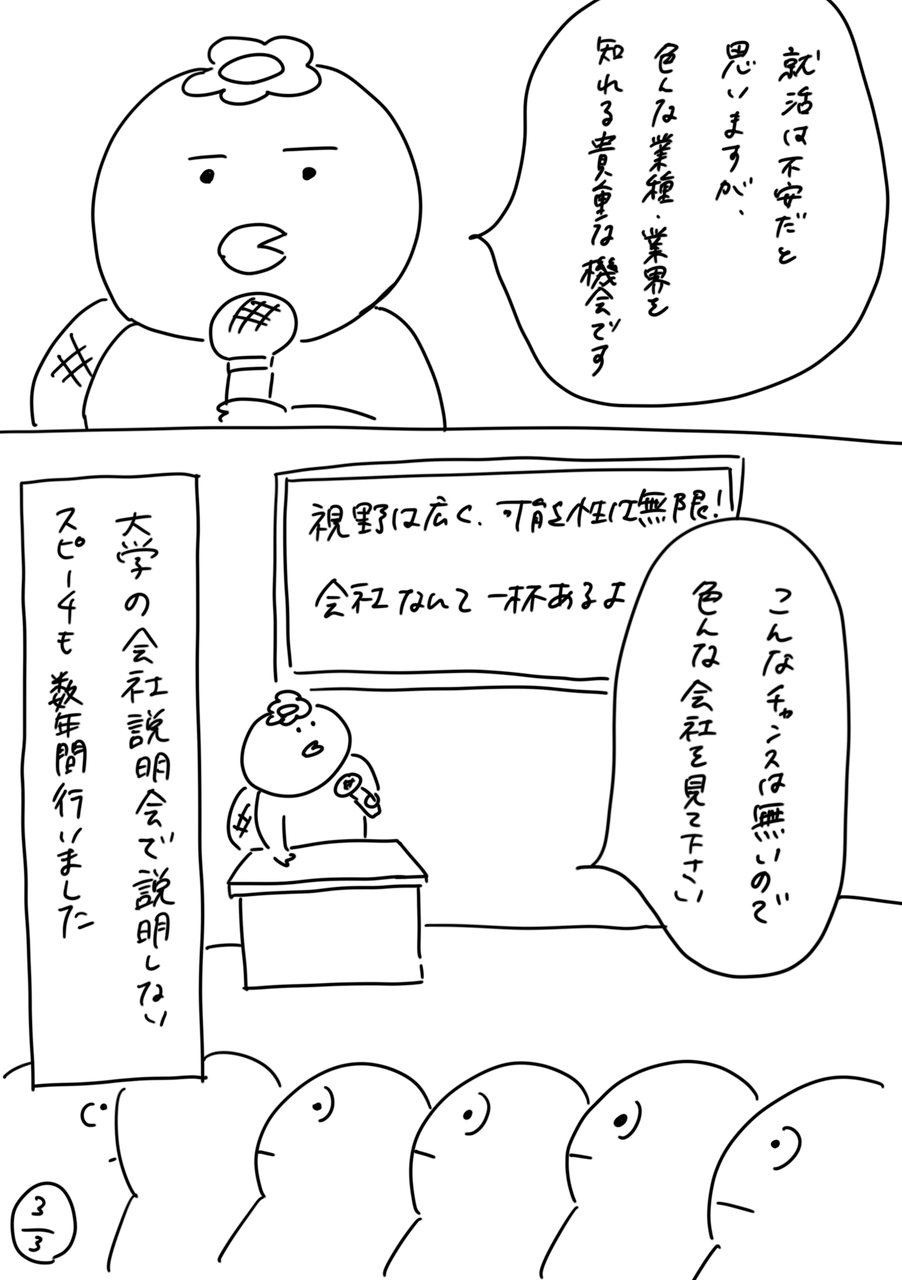 就活は不安だと
思いますが、
色んな業種・業界を
知れる貴重な機会です
視野は広く、可能性は無限!
会社なんて一杯あるよ
こんなチャンスは無いので
色んな会社を見て下さい
大学の会社説明会で説明しない
スピーチも数年間行いました
3/3